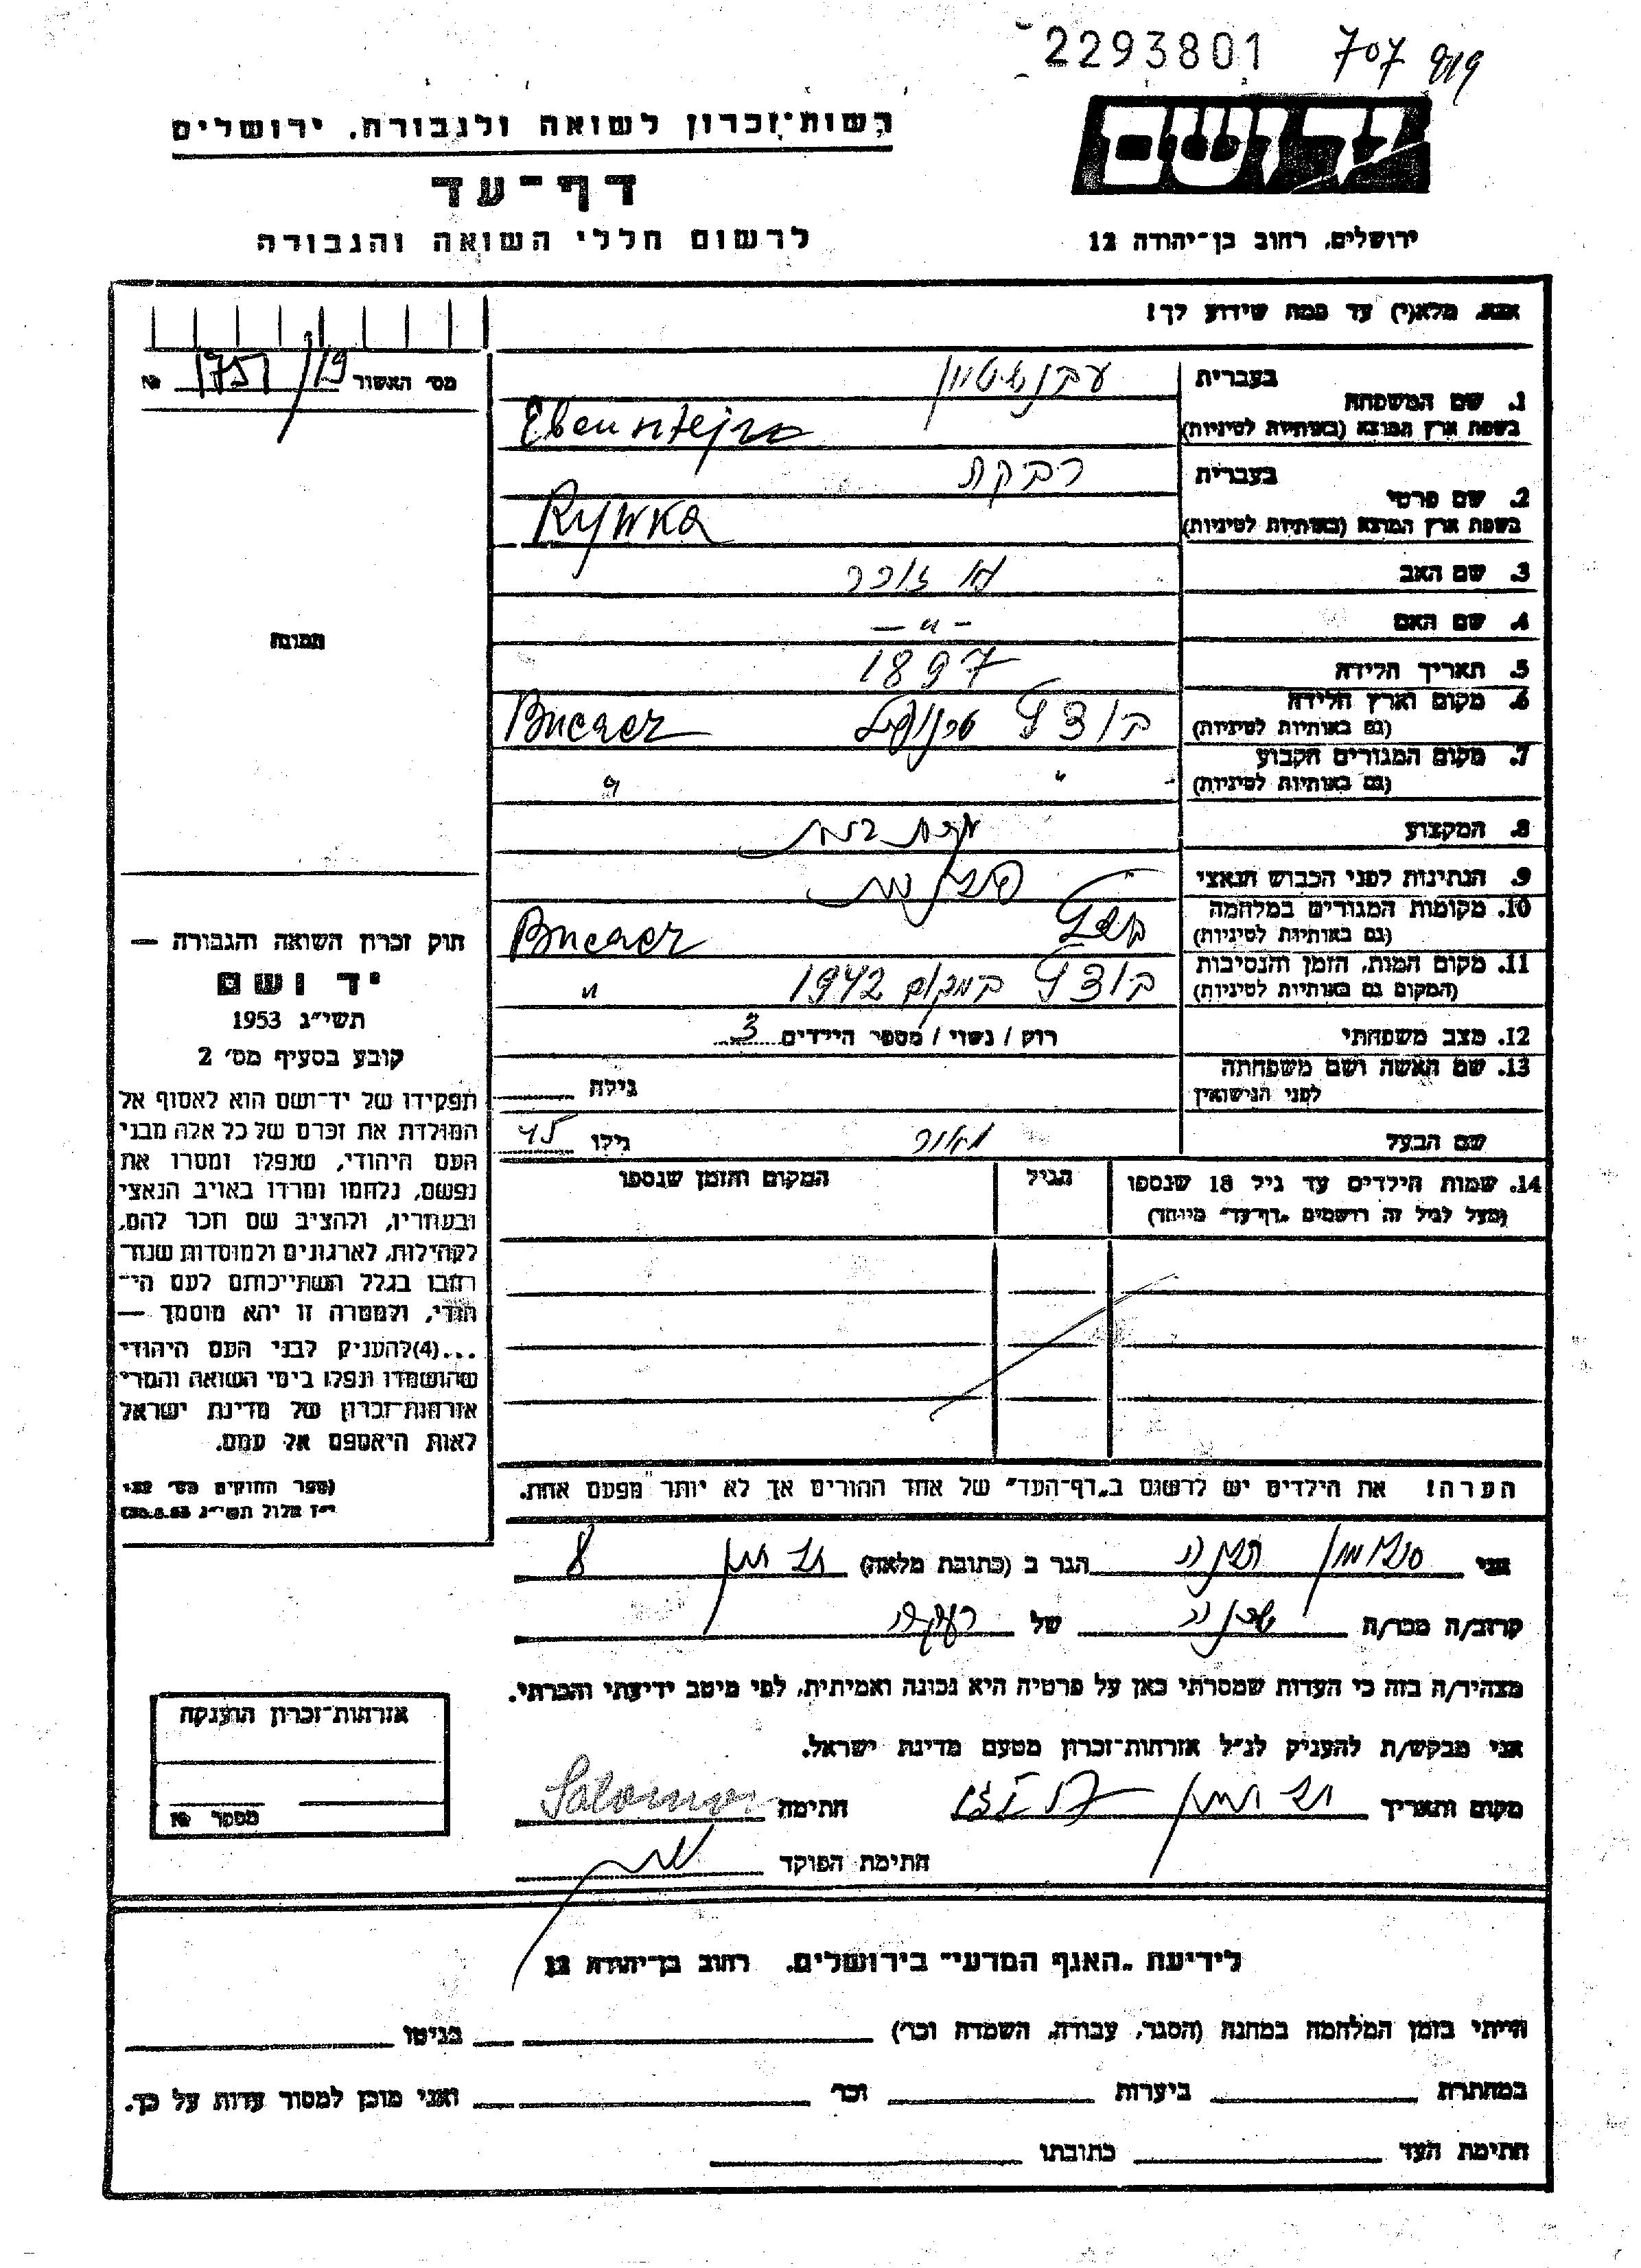 2293801 707
רשות־זכרון לשואה ולגבורה. ירושלים
ידושם
דף־עד
לרשום חללי השואה והגבורה
ירושלים, רחוב בן־יהודה 12
אנא, מלא(י) עד כמה שידוע לך!
מס׳ האשור 1751/19 №
בעברית
1. שם המשפחה
עבנשטיין
בשפת ארץ המוצא (באותיות לטיניות)
Ebensztejn
בעברית
2. שם פרטי
רבקה
בשפת ארץ המוצא (באותיות לטיניות)
Rywka
3. שם האב לא זוכר
4. שם האם — " —
5. תאריך הלידה 1897
6. מקום וארץ הלידה
(גם באותיות לטיניות)
Buczacz
7. מקום המגורים הקבוע
(גם באותיות לטיניות)
" "
8. המקצוע עקרת בית
9. הנתינות לפני הכבוש הנאצי פולנית
10. מקומות המגורים במלחמה
(גם באותיות לטיניות)
Buczacz
11. מקום המות, הזמן והנסיבות
(המקום גם באותיות לטיניות)
במקום 1942 "
12. מצב משפחתי רוק / נשוי / מספר הילדים 3
13. שם האשה ושם משפחתה
לפני הנישואין
גילה
שם הבעל
גילו 45
14. שמות הילדים עד גיל 18 שנספו
(מעל לגיל זה רושמים „דף־עד” מיוחד)
הגיל
המקום והזמן שנספו
הערה! את הילדים יש לרשום ב„דף־העד” של אחד ההורים אך לא יותר מפעם אחת.
תמונה
חוק זכרון השואה והגבורה —
יד ושם
תשי״ג 1953
קובע בסעיף מס׳ 2
תפקידו של יד־ושם הוא לאסוף אל
המולדת את זכרם של כל אלה מבני
העם היהודי, שנפלו ומסרו את
נפשם, נלחמו ומרדו באויב הנאצי
ובעוזריו, ולהציב שם וזכר להם,
לקהילות, לארגונים ולמוסדות שנח־
רבו בגלל השתייכותם לעם הי־
הודי, ולמטרה זו יהא מוסמך —
...(4)להעניק לבני העם היהודי
שהושמדו ונפלו בימי השואה והמרי
אזרחות־זכרון של מדינת ישראל
לאות היאספם אל עמם.
(ספר החוקים מס׳ 132
י״ז אלול תשי״ג 28.8.53)
אני הגר ב (כתובת מלאה) 8
קרוב/ה מכר/ה שכנה של
מצהיר/ה בזה כי העדות שמסרתי כאן על פרטיה היא נכונה ואמיתית, לפי מיטב ידיעתי והכרתי.
אני מבקש/ת להעניק לנ״ל אזרחות־זכרון מטעם מדינת ישראל.
מקום ותאריך חתימה Salomon
חתימת הפוקד
אזרחות־זכרון הוענקה
מספר №
לידיעת „האגף המדעי” בירושלים. רחוב בן־יהודה 12
הייתי בזמן המלחמה במחנה (הסגר, עבודה, השמדה וכו׳) בגיטו
במחתרת ביערות וכו׳ ואני מוכן למסור עדות על כך.
חתימת העד כתובתו